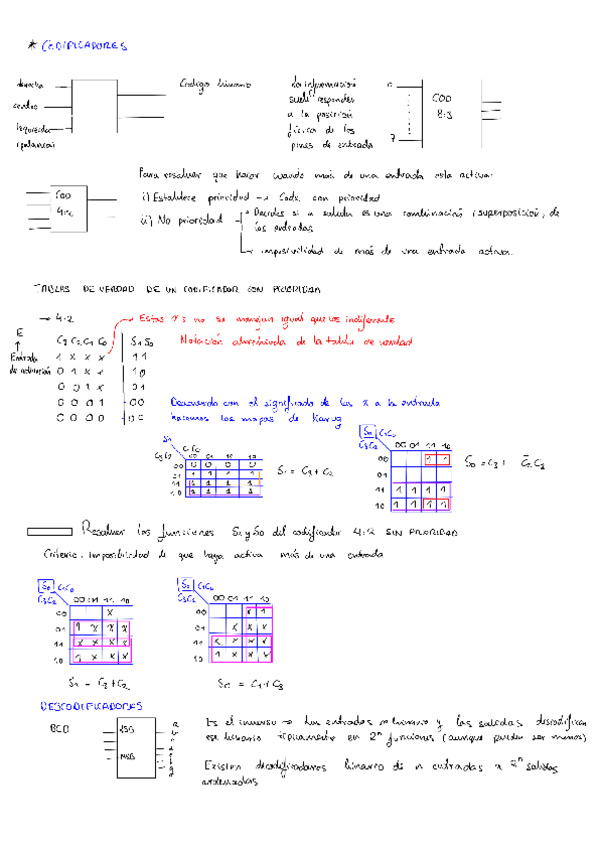 * CODIFICADORES
derecha
centro
izquierda
Código binario
La información
suele responder
a la posición
física de los
pines de entrada
0
7
COD
8:3
COD
4:2
Para resolver que hacer cuando más de una entrada esta activa:
i) Establece prioridad → Codx. con prioridad
ii) No prioridad
Decides si a salida es una combinación (superposición) de
las entradas
imposibilidad de más de una entrada activa.
TABLAS DE VERDAD DE UN CODIFICADOR CON PRIORIDAD
→ 4:2
Estas X's no se manejan igual que las indiferente
Notación abreviada de la tabla de verdad
E
↑
Entrada
de activación
C3 C2 C1 C0 | S1 S0
1 X X X | 11
0 1 X X | 10
0 0 1 X | 01
0 0 0 1 | 00
0 0 0 0 | 00
Deacuerdo con el significado de las X a la entrada
hacemos los mapas de Karug
S1
C1C0
C3C2
00 01 11 10
00 0 0 0 0
01 1 1 1 1
11 1 1 1 1
10 1 1 1 1
S1 = C3 + C2
S0 C1C0
C3C2
00 01 11 10
00 1 1
01
11 1 1 1 1
10 1 1 1 1
Resolver las funciones S1 y S0 del codificador 4:2 SIN PRIORIDAD
Criterio: Imposibilidad de que haya activa más de una entrada
S0 C1C0
C3C2
00 01 11 10
00 X
01 1 X X X
11 X X X X
10 1 X X X
S1 = C3 + C2
C1C0
C3C2
00 01 11 10
00 X 1
01 X X X
11 X X X X
10 1 X X X
S0 = C1 + C3
DESCODIFICADORES
BCD
LSB
MSB
a
b
c
d
e
f
g
Es el inverso → hay entradas en binario y las salidas descodifican
ese binario típicamente en 2ⁿ funciones (aunque pueden ser menos)
Existen decodificadores binario de n entradas a 2ⁿ salidas
ordenadas